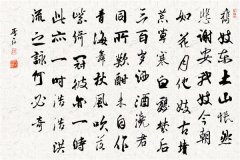 攜妓東土山悵然
悲謝安我妓今朝
如花月他妓古墳
荒草寒白雞夢後
三百歲灑酒澆君
同所歡酣來自作
青海舞秋風吹落
紫綺冠彼亦一時
此亦一時浩浩洪
流之詠何必奇